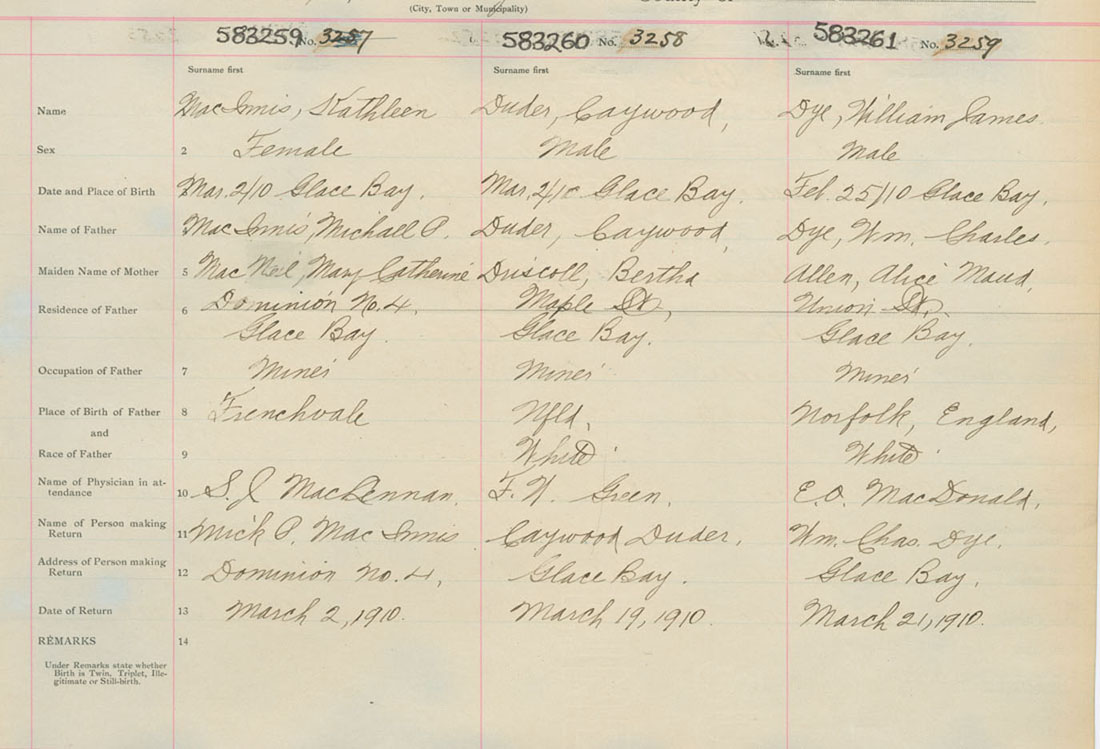 (City, Town or Municipality)
583259 No. 3257 583260 No. 3258 583261 No. 3259
Surname first Surname first Surname first
Name MacInnis, Kathleen Duder, Caywood, Dye, William James.
Sex 2 Female Male Male
Date and Place of Birth 3 Mar. 2/10 Glace Bay. Mar. 2/10 Glace Bay. Feb. 25/10 Glace Bay.
Name of Father MacInnis, Michael P. Duder, Caywood, Dye, Wm. Charles.
Maiden Name of Mother 5 MacNeil, Mary Catherine Driscoll, Bertha Allen, Alice Maud,
Residence of Father 6 Dominion No. 4, Maple St., Union St.,
Glace Bay. Glace Bay. Glace Bay.
Occupation of Father 7 Miner Miner Miner
Place of Birth of Father 8 Frenchvale Nfld, Norfolk, England,
and
Race of Father 9 White White
Name of Physician in at-
tendance 10 S. J MacLennan. F. W. Green, E. O. MacDonald,
Name of Person making
Return 11 Mick P. MacInnis Caywood Duder, Wm. Chas. Dye.
Address of Person making
Return 12 Dominion No. 4, Glace Bay. Glace Bay,
Date of Return 13 March 2, 1910. March 19, 1910. March 21, 1910.
REMARKS 14
Under Remarks state whether
Birth is Twin, Triplet, Ille-
gitimate or Still-birth.